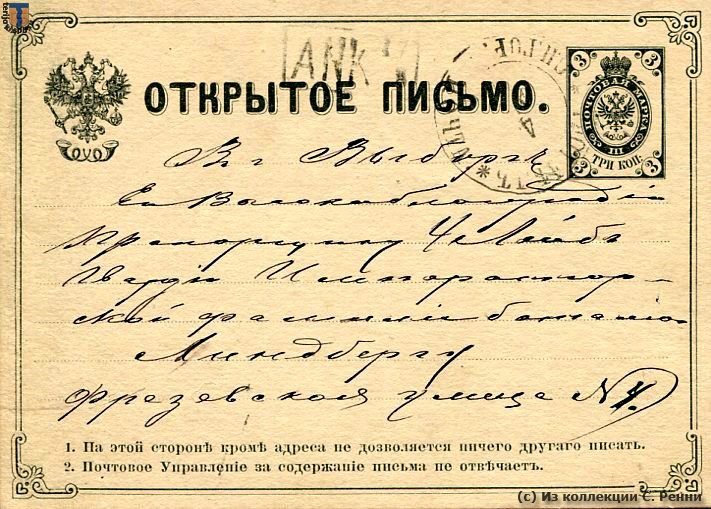 terijoki.spb.ru
ANK
ОТКРЫТОЕ ПИСЬМО.
3 3
ПОЧТОВАЯ МАРКА
III
ТРИ КОП:
3 3
Въ г Выборгъ
Его Высокоблагородію
Прапорщику 4 Лейбъ
Гвардіи Император-
ской фамиліи баталіо-
Линдбергу
Фрезевская улица N 4.
1. На этой сторонѣ кромѣ адреса не дозволяется ничего другаго писать.
2. Почтовое Управленіе за содержаніе письма не отвѣчаетъ.
(c) Из коллекции С. Ренни